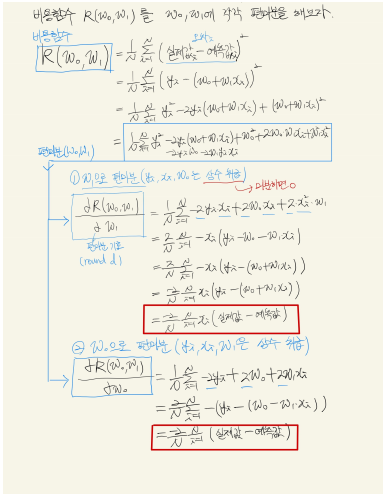 비용함수 R(w0,w1) 를 w0,w1에 각각 편미분을 해보자.
비용함수
오차
R(w0,w1) = 1/N Σ(i=1..N) (실제값 - 예측값)²
= 1/N Σ(i=1..N) (yi - (w0+w1xi))²
= 1/N Σ(i=1..N) yi² - 2yi(w0+w1xi) + (w0+w1xi)²
= 1/N Σ(i=1..N) yi² - 2yi(w0+w1xi) + w0² + 2w0w1xi + w1²xi²
-2yiw0 - 2w1yixi
편미분(w0,w1)
① w1으로 편미분 (yi, xi, w0는 상수 취급)
→ 미분하면 0
∂R(w0,w1)/∂w1 = 1/N Σ(i=1..N) -2yixi + 2w0xi + 2xi²·w1
편미분 기호
(round d)
= 2/N Σ(i=1..N) -xi(yi - w0 - w1xi)
= 2/N Σ(i=1..N) -xi(yi - (w0+w1xi))
= -2/N Σ(i=1..N) xi(yi - (w0+w1xi))
= -2/N Σ(i=1..N) xi(실제값 - 예측값)
② w0으로 편미분 (yi, xi, w1은 상수 취급)
∂R(w0,w1)/∂w0 = 1/N Σ(i=1..N) -2yi + 2w0 + 2w1xi
= 2/N Σ(i=1..N) -(yi - (w0 - w1·xi))
= -2/N Σ(i=1..N) (실제값 - 예측값)